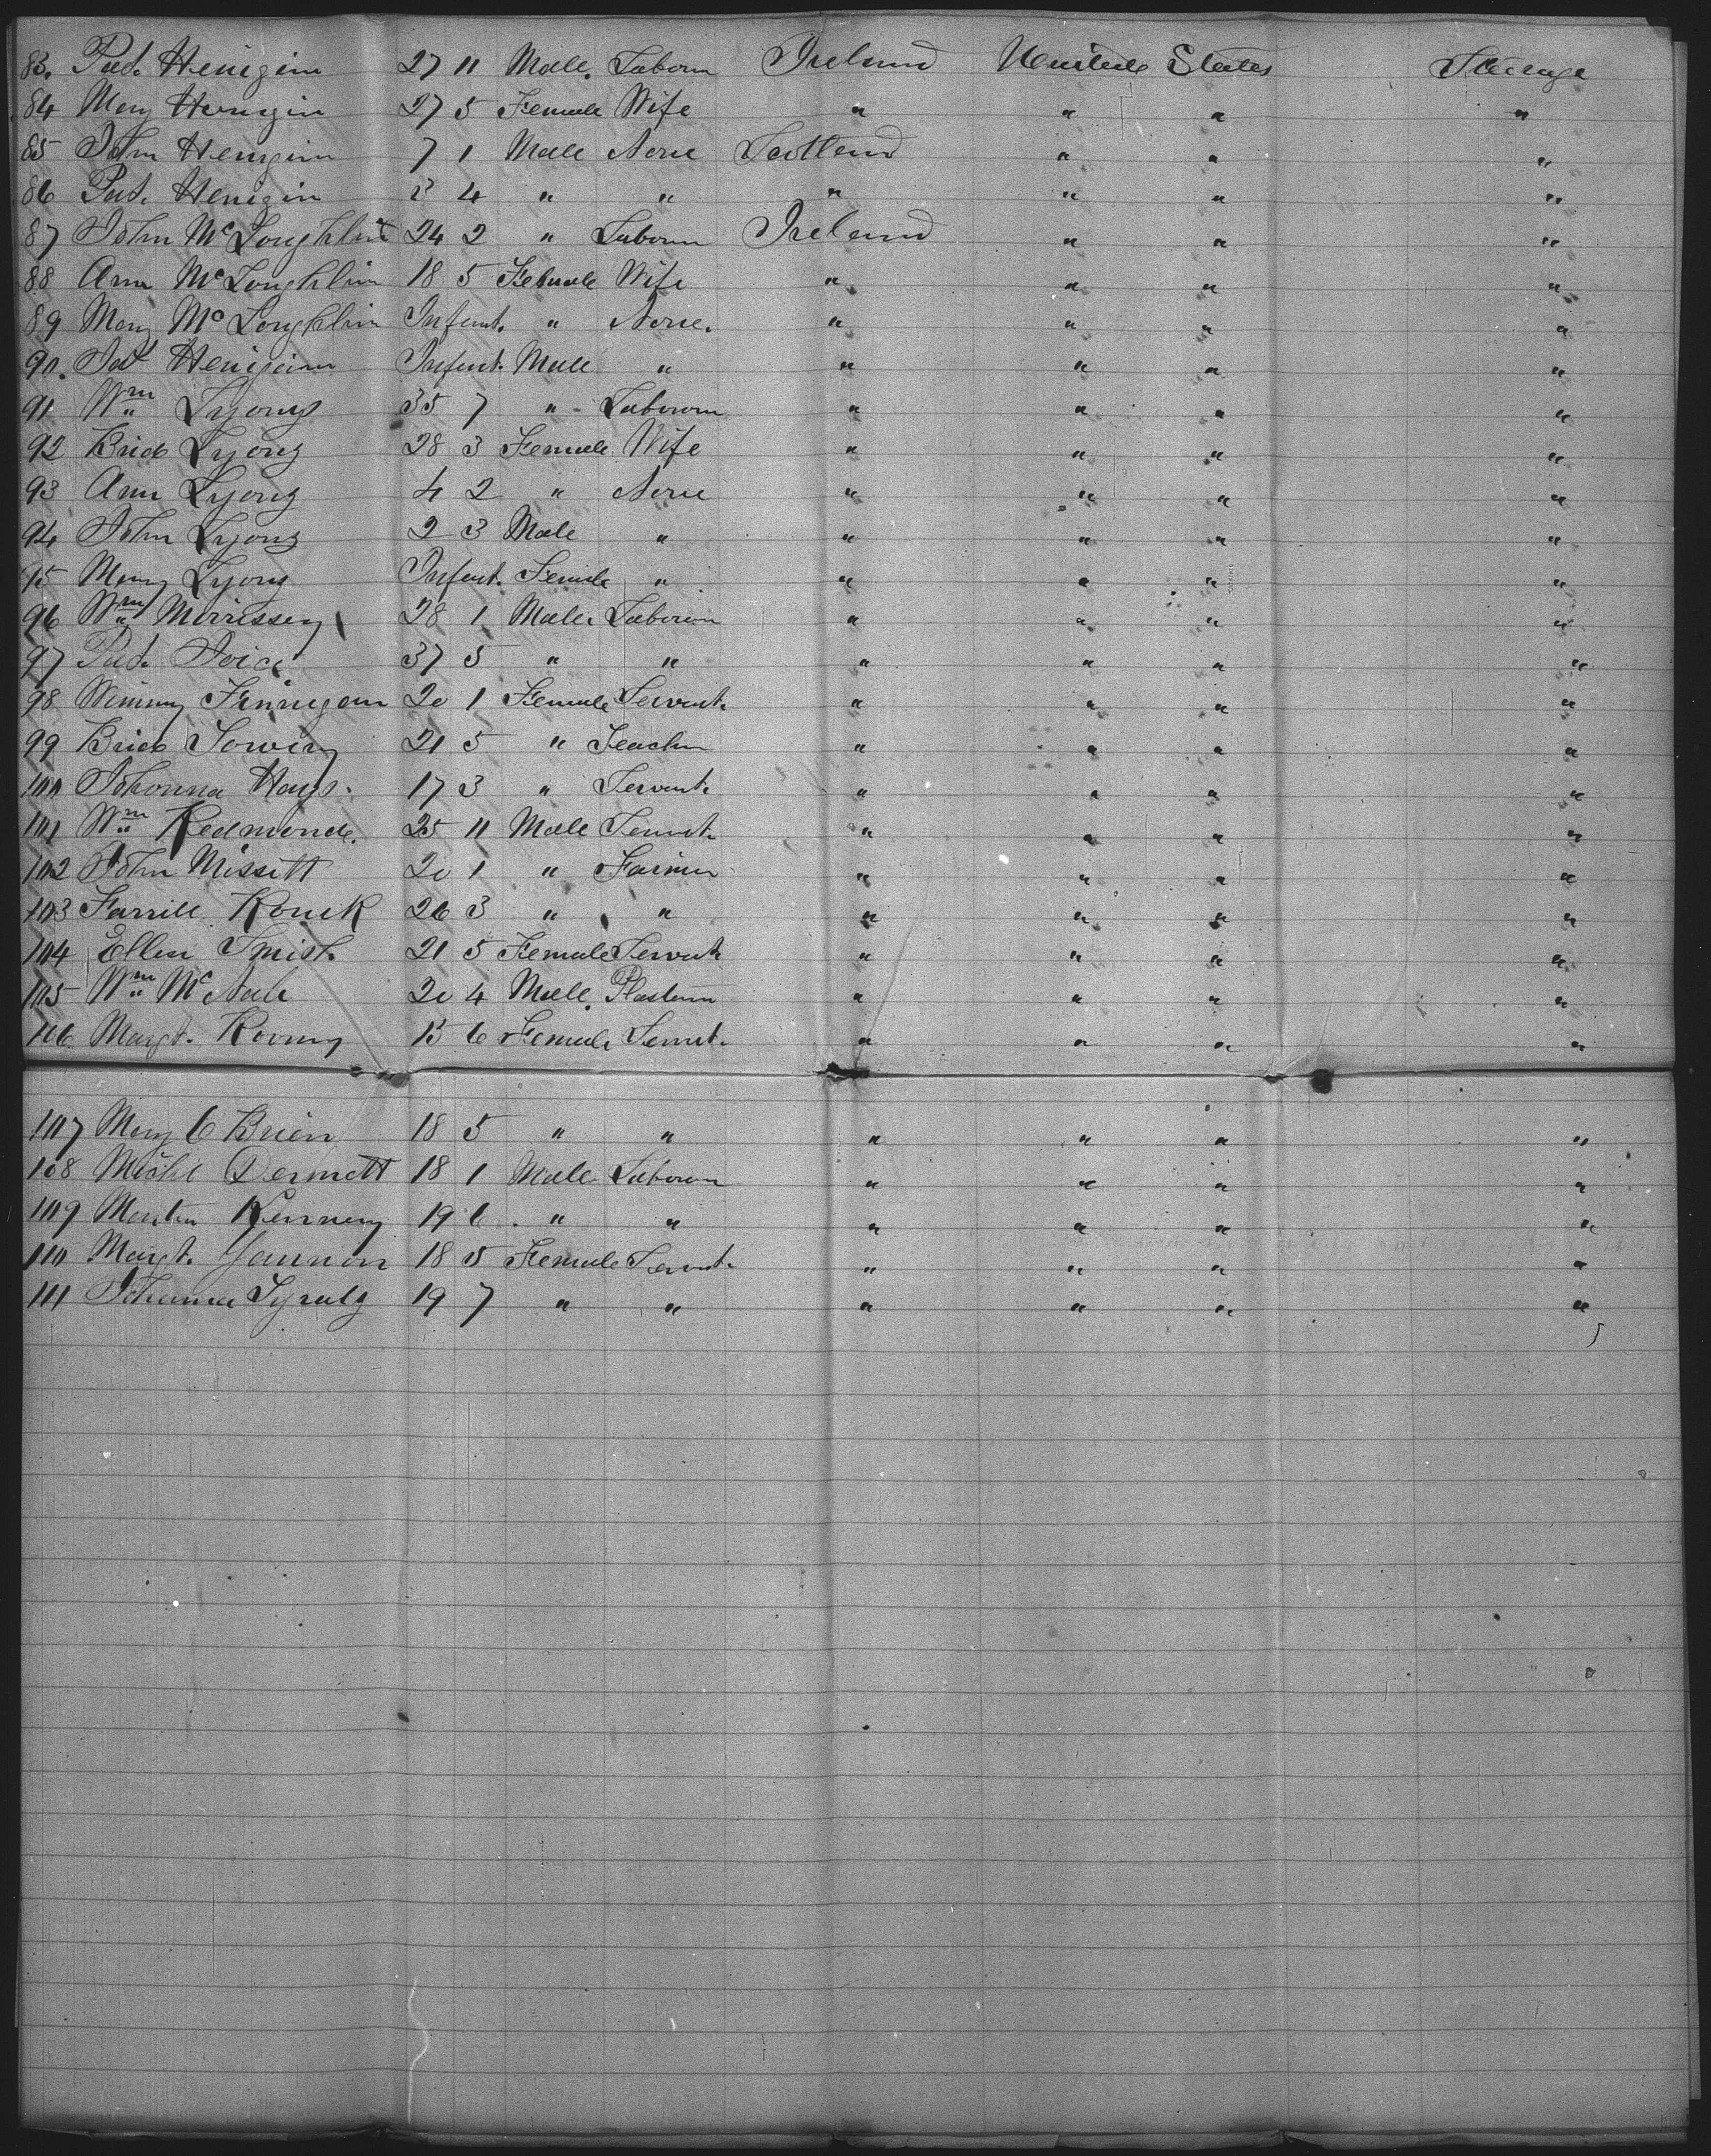 83. Pat. Henigin 27 11 Male. Laborer Ireland United States Steerage
84 Mary Henigin 27 5 Female Wife " " " "
85 John Henigin 7 1 Male None Scotland " " "
86 Pat. Henigin 3 4 " " " " " "
87 John McLoughlin 24 2 " Laborer Ireland " " "
88 Ann McLoughlin 18 5 Female Wife " " " "
89 Mary McLoughlin Infant. " None. " " " "
90. Henigan Infant. Male " " " " "
91 Wm Lyons 35 7 " Laborer " " " "
92 Brid Lyons 28 3 Female Wife " " " "
93 Ann Lyons 4 2 " None " " " "
94 John Lyons 2 3 Male " " " " "
95 Mary Lyons Infant. Female " " " " "
96 Wm Morrissey 28 1 Male Laborer " " " "
97 Pat. Joice 37 5 " " " " " "
98 Winny Finnigan 20 1 Female Servant. " " " "
99 Brid 21 5 " Teacher " " " "
100 Johanna Hays. 17 3 " Servant. " " " "
101 Wm Redmond. 25 11 Male Servnt. " " " "
102 John Missitt 20 1 " Farmer " " " "
103 Farrill 26 3 " " " " " "
104 Ellen Smith. 21 5 Female Servant " " " "
105 Wm 20 4 Male. Plasterer " " " "
106 Margt. Rooney 15 6 Female Servnt. " " " "
107 Mary O Brien 18 5 " " " " " "
108 Michl Dermott 18 1 Male Laborer " " " "
109 Martin Kenney 19 6 " " " " " "
110 Margt. Gannon 18 5 Female Servnt. " " " "
111 Johanna 19 7 " " " " " "